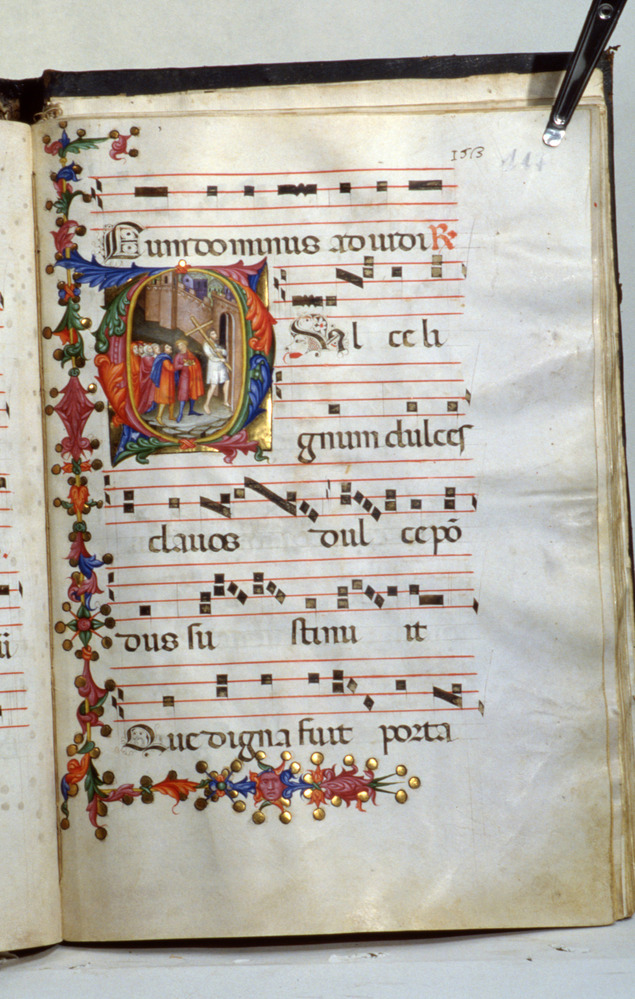 153
Cum dominus ad iudi R
DUl ce li
gnum dulces
clauos dul ce põ
dus su stinu it
Que digna fuit porta